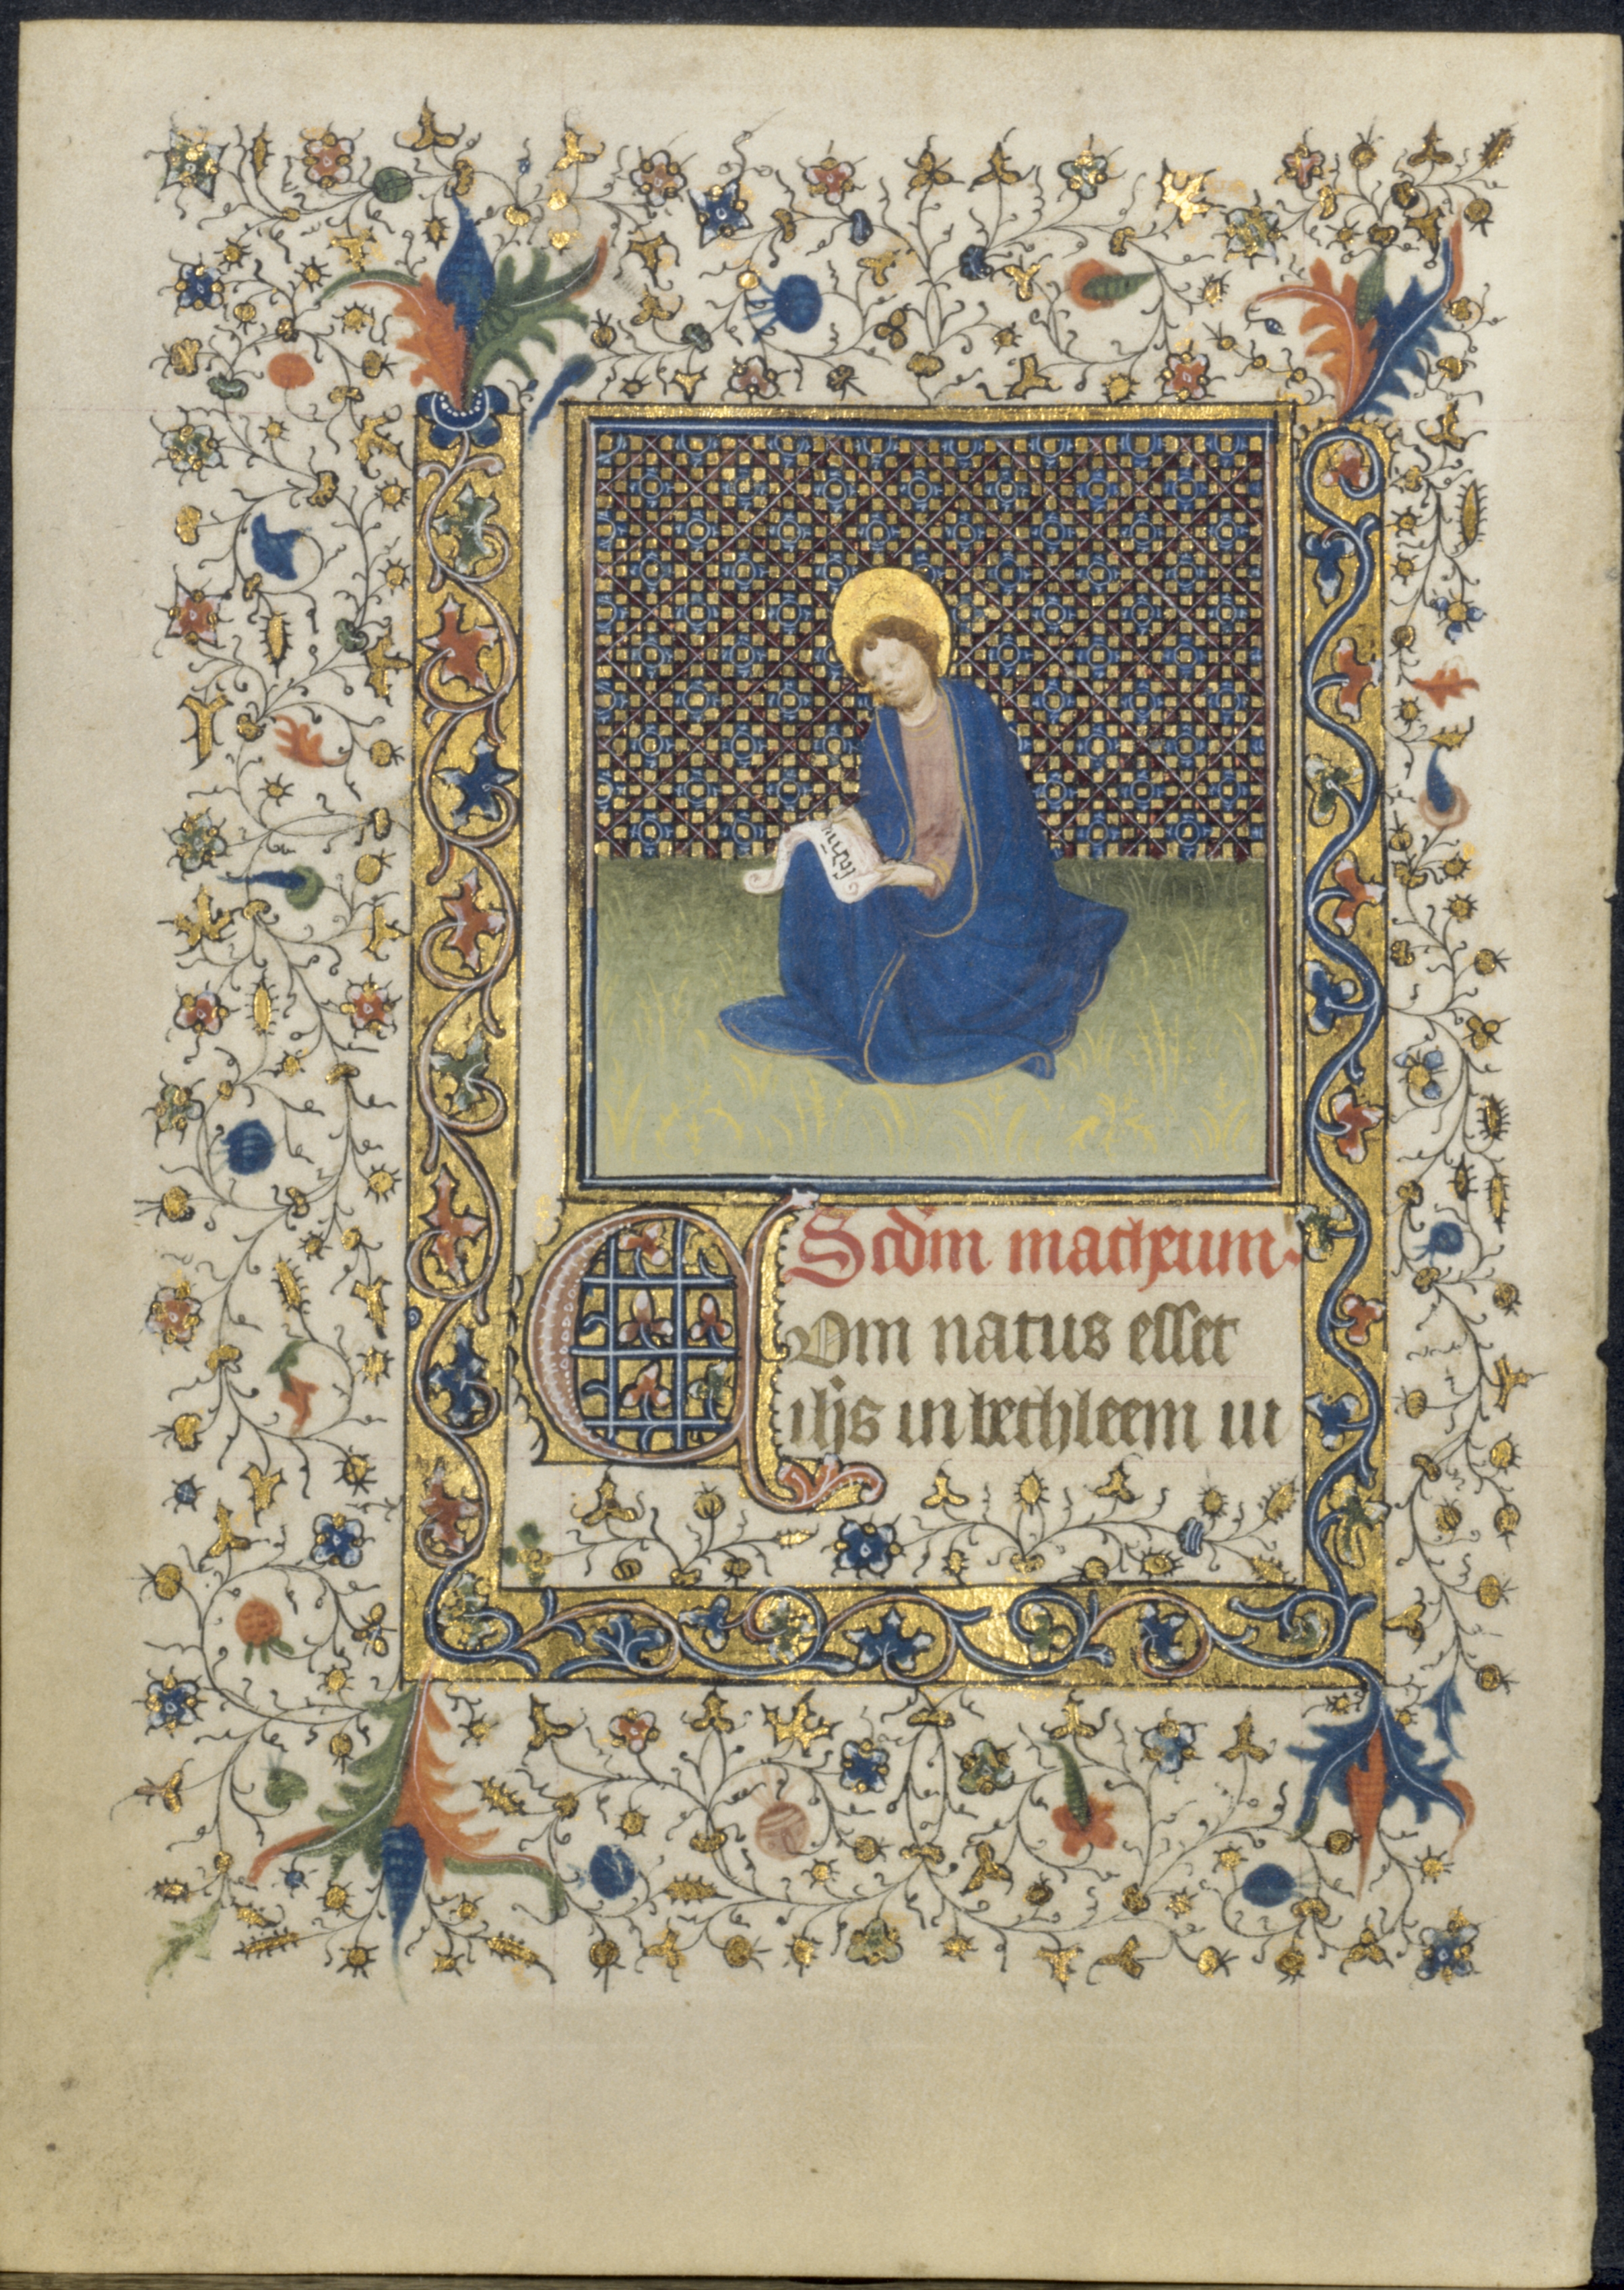 Scdm matheum
Qvm natus esset
ihs in bethleem iu